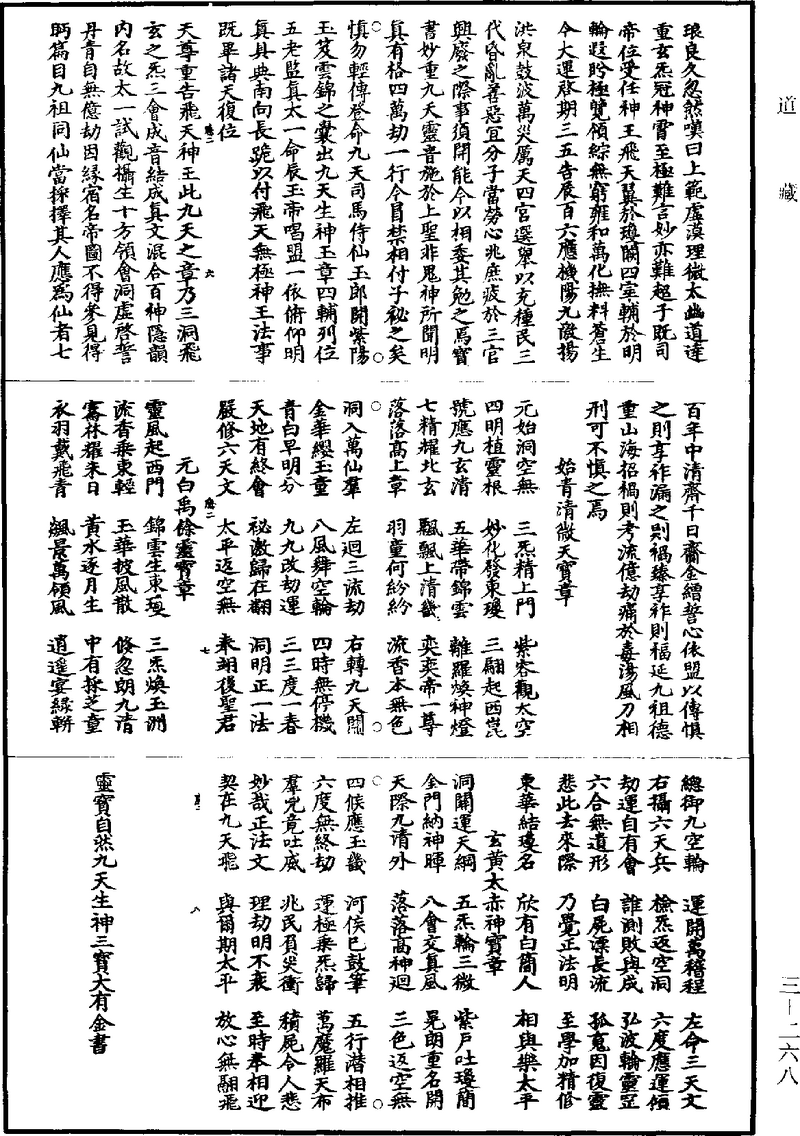 道藏
琅良久忽然嘆曰上範虛漠理微太幽道達
重玄炁冠神霄至極難言妙亦難超子既司
帝位受任神王飛天翼於瓊闕四宰輔於明
輪遐眄極覽領綜無窮雍和萬化撫料蒼生
今大運啓期三五告晨百六應機陽九激揚
洪泉鼓波萬災厲天四宮選舉以充種民三
代昏亂善惡宜分子當勞心兆庶疲於三官
興廢之際事須開能今以相委其勉之焉寶
書妙重九天靈音施於上聖非鬼神所聞明
真有格四萬劫一行今冒禁相付子祕之矣
慎勿輕傳登命九天司馬侍仙玉郎開紫陽
玉笈雲錦之囊出九天生神玉章四輔列位
五老監真太一命辰玉帝唱盟一依俯仰明
真具典南向長跪以付飛天無極神王法事
既畢諸天復位
天尊重告飛天神王此九天之章乃三洞飛
玄之炁三會成音結成真文混合百神隱韻
內名故太一試觀攝生十方領會洞虛啓誓
丹青自無億劫因緣宿名帝圖不得參見得
眄篇目九祖同仙當採擇其人應爲仙者七
百年中清齋千日齎金繒誓心依盟以傳慎
之則享祚漏之則禍臻享祚則福延九祖德
重山海招禍則考流億劫痛於毒湯風刀相
刑可不慎之焉
始青清微天寶章
元始洞空無 三炁精上門 紫容觀太空
四明植靈根 妙化發東瓊 三翮起西崑
號應九玄清 五華帶錦雲 離羅煥神燈
七精耀北玄 飄飄上清畿 奕奕帝一尊
落落高上章 羽童何紛紛 流香本無色
洞入萬仙羣 左迴三流劫 右轉九天關
金華纓玉童 八風舞空輪 四時無停機
青白早明分 九九改劫運 三三度一春
天地有終會 祕激歸在翻 洞明正一法
嚴修六天文 太平返空無 奉翊後聖君
元白禹餘靈寶章
靈風起西門 錦雲生東瓊 三炁煥玉洲
流香乘東輕 玉華披風散 倏忽朗九清
騫林耀朱日 黃水逐月生 中有採芝童
衣羽戴飛青 飆景萬領風 逍遥宴綠軿
總御九空輪 運開萬稽程 左命三天文
右攝六天兵 撿炁返空洞 六度應運傾
劫運自有會 誰測敗與成 弘波輪靈罡
六合無遺形 白屍漂長流 孤寬因復靈
悲此去來際 乃覺正法明 至學加精修
東華結瓊名 欣有白簡人 相與樂太平
玄黃太赤神寶章
洞開運天綱 五炁輪三微 紫戶吐瓊簡
金門納神暉 八會交真風 晃朗重名開
天際九清外 落落高神迴 三色返空無
四候應玉畿 河侯已鼓筆 五行潛相推
六度無終劫 運極乘炁歸 萬魔羅天布
羣兇竟吐威 兆民負災衝 積屍令人悲
妙哉正法文 理劫明不衰 至時奉相迎
契在九天飛 與爾期太平 放心無翮飛
靈寶自然九天生神三寶大有金書
六
七
八
三-二六八